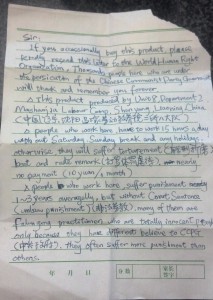 Sir:
If you occasionally buy this product, please
kindly resend this letter to the World Human Right
Organization. Thousands people here who are under
the persicution of the Chinese Communist Party Government
will thank and remember you forever.
This product produced by Unit 8, Department 2
Masanjia Labour Camp, Shenyang, Liaoning, China
(中国,辽宁,沈阳,马三家
people who work here, have to work 15 hours a day
with out Saturday, Sunday break and any holidays,
otherwise, they will suffer torturement
beat and rude remark nearly
no payment (10 yuan/1 month)
people who work here, suffer punishment nearly
1~3 years averagely, but without Court Sentence
(unlaw punishment) many of them are
Falun gong practitioner, who are totally innocent people
only because they have different believe to CCPG
they often suffer more punishment than
others.
年 月 日